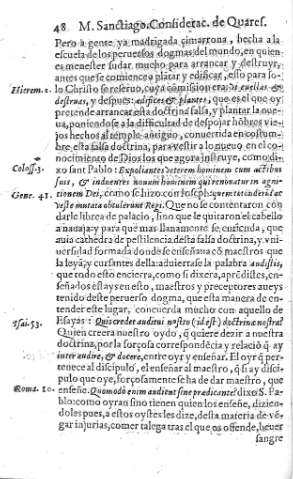 48 M. Sanctiago. Considerac. de Quares.
Pero a gente ya madrigada cimarrona, hecha a la
escuela de los peruersos dogmas del mundo, en quien
es menester sudar mucho para arrancar y destruyr,
antes que se comience a plantar y edificar, esto para so-
Hierem. 1. lo Christo se reseruo, cuya comision era: Vt euellas &
destruas, y despues: ædifices & plantes, que es el que oy
pretende arrancar esta doctrina falsa, y plantar la nue-
ua, poniendose a la dificultad de despojar hõbres vie-
jos hechos al tẽple antiguo, conuertida en costum-
bre, esta falsa doctrina, para vestir a lo nueuo en el co-
nocimiento de Dios los que agora instruye, como di-
Coloss. 3. xo sant Pablo: Expoliantes veterem hominem cum actibus
suis, & induentes nouum hominem qui renouatur in agni-
Gene. 41. tionem Dei, como se hizo con Ioseph:
ac veste mutata obtulerunt Regi. Que no se contentaron con
darle libre a de palacio, sino que le quitaron el cabello
a nauaja y para que mas llanamente se entienda, que
auia cathedra de pestilencia desta falsa doctrina, y vni-
uersidad formada donde se enseñaua cõ maestros que
la leya y cursantes della: aduiertase la palabra audistis,
que todo esto encierra, como si dixera, aprẽdistes, en-
señados estays en esto, maestros y preceptores aueys
tenido deste peruerso dogma, que esta manera de en-
tender este lugar, concuerda mucho con aquello de
Isai. 53. Esayas: Quis credet auditui nostro (id est) doctrinæ nostræ?
Quien creera nuestro oydo, q̃ quiere dezir a nuestra
doctrina, por la forçosa correspondẽcia y relaciõ q̃ ay
inter audire, & docere, entre oyr y enseñar. El oyr q̃ per-
tenece al discipulo, el enseñar al maestro, q̃ si ay disci-
pulo que oye, forçosamente se ha de dar maestro, que
Roma. 10. enseñe. Quomodo enim audient sine prædicante? dixo S. Pa-
blo: como oyran sino tienen quien los enseñe, dizien-
doles pues, a estos oystes les dize, desta materia de vẽ-
gar injurias, comer talega tras el que os offende, beuer
sangre